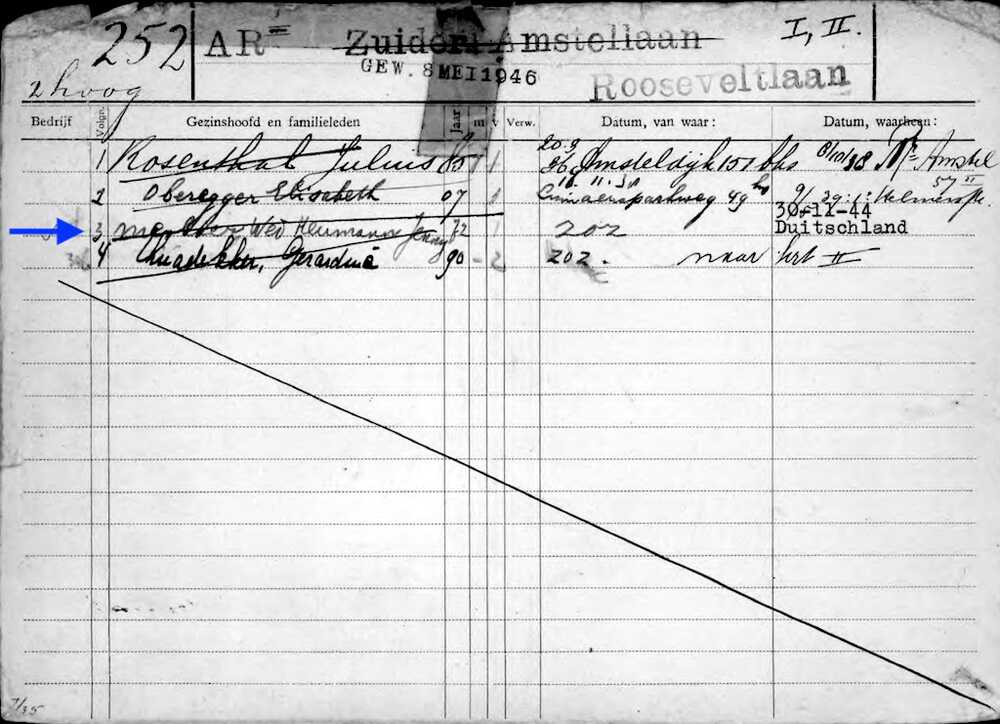 252 AR= Zuider Amstellaan I, II.
GEW. 8 MEI 1946
2 hoog Rooseveltlaan
Bedrijf Volgn. Gezinshoofd en familieleden Jaar m v Verw. Datum, van waar: Datum, waarheen:
1 Rosenthal Julius 85 1 20.9 36 Amsteldijk 151 bhs 8/10/38 Amstel
57 II
2 Oberegger Elisabeth 07 1 49
30-11-44
3 Wed 72 1 202 Duitschland
4 Gerardina 90 - 2 202. naar hrt II
7/35